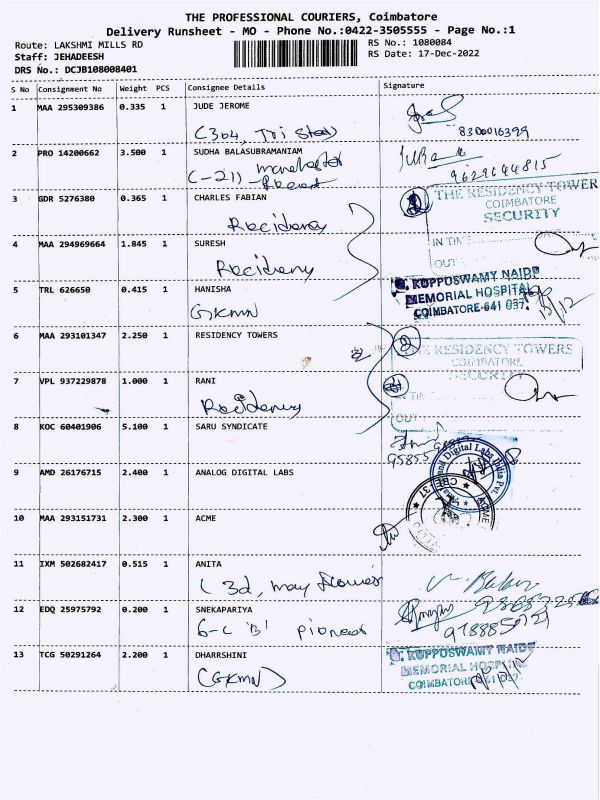 THE PROFESSIONAL COURIERS, Coimbatore
Delivery Runsheet - MO - Phone No.:0422-3505555 - Page No.:1
Route: LAKSHMI MILLS RD
RS No.: 1080084
Staff: JEHADEESH
RS Date: 17-Dec-2022
DRS No.: DCJB108008401
S No Consignment No Weight PCS Consignee Details Signature
1 MAA 295309386 0.335 1 JUDE JEROME
8300016399
(304, Tri Star)
2 PRO 14200662 3.500 1 SUDHA BALASUBRAMANIAM
9629644815
(-21)
3 GDR 5276380 0.365 1 CHARLES FABIAN
THE RESIDENCY TOWER
COIMBATORE
SECURITY
Recidency
4 MAA 294969664 1.845 1 SURESH
IN TIME
OUT
Recideny
5 TRL 626650 0.415 1 HANISHA
G. KUPPUSWAMY NAIDU
MEMORIAL HOSPITAL
COIMBATORE-641 037.
GKMN
6 MAA 293101347 2.250 1 RESIDENCY TOWERS
THE RESIDENCY TOWERS
COIMBATORE
SECURITY
7 VPL 937229878 1.000 1 RANI
IN TI
OUT
Recidency
8 KOC 60401906 5.100 1 SARU SYNDICATE
9 AMD 26176715 2.400 1 ANALOG DIGITAL LABS
and Digital Labs India Pvt.
10 MAA 293151731 2.300 1 ACME
ACME
CBE 37
11 IXM 502682417 0.515 1 ANITA
(3d, may flower
12 EDQ 25975792 0.200 1 SNEKAPARIYA
6-C 'B' pioneer
13 TCG 50291264 2.200 1 DHARRSHINI
G. KUPPUSWAMY NAIDU
MEMORIAL HOSPITAL
COIMBATORE-641 037.
(GKMN)